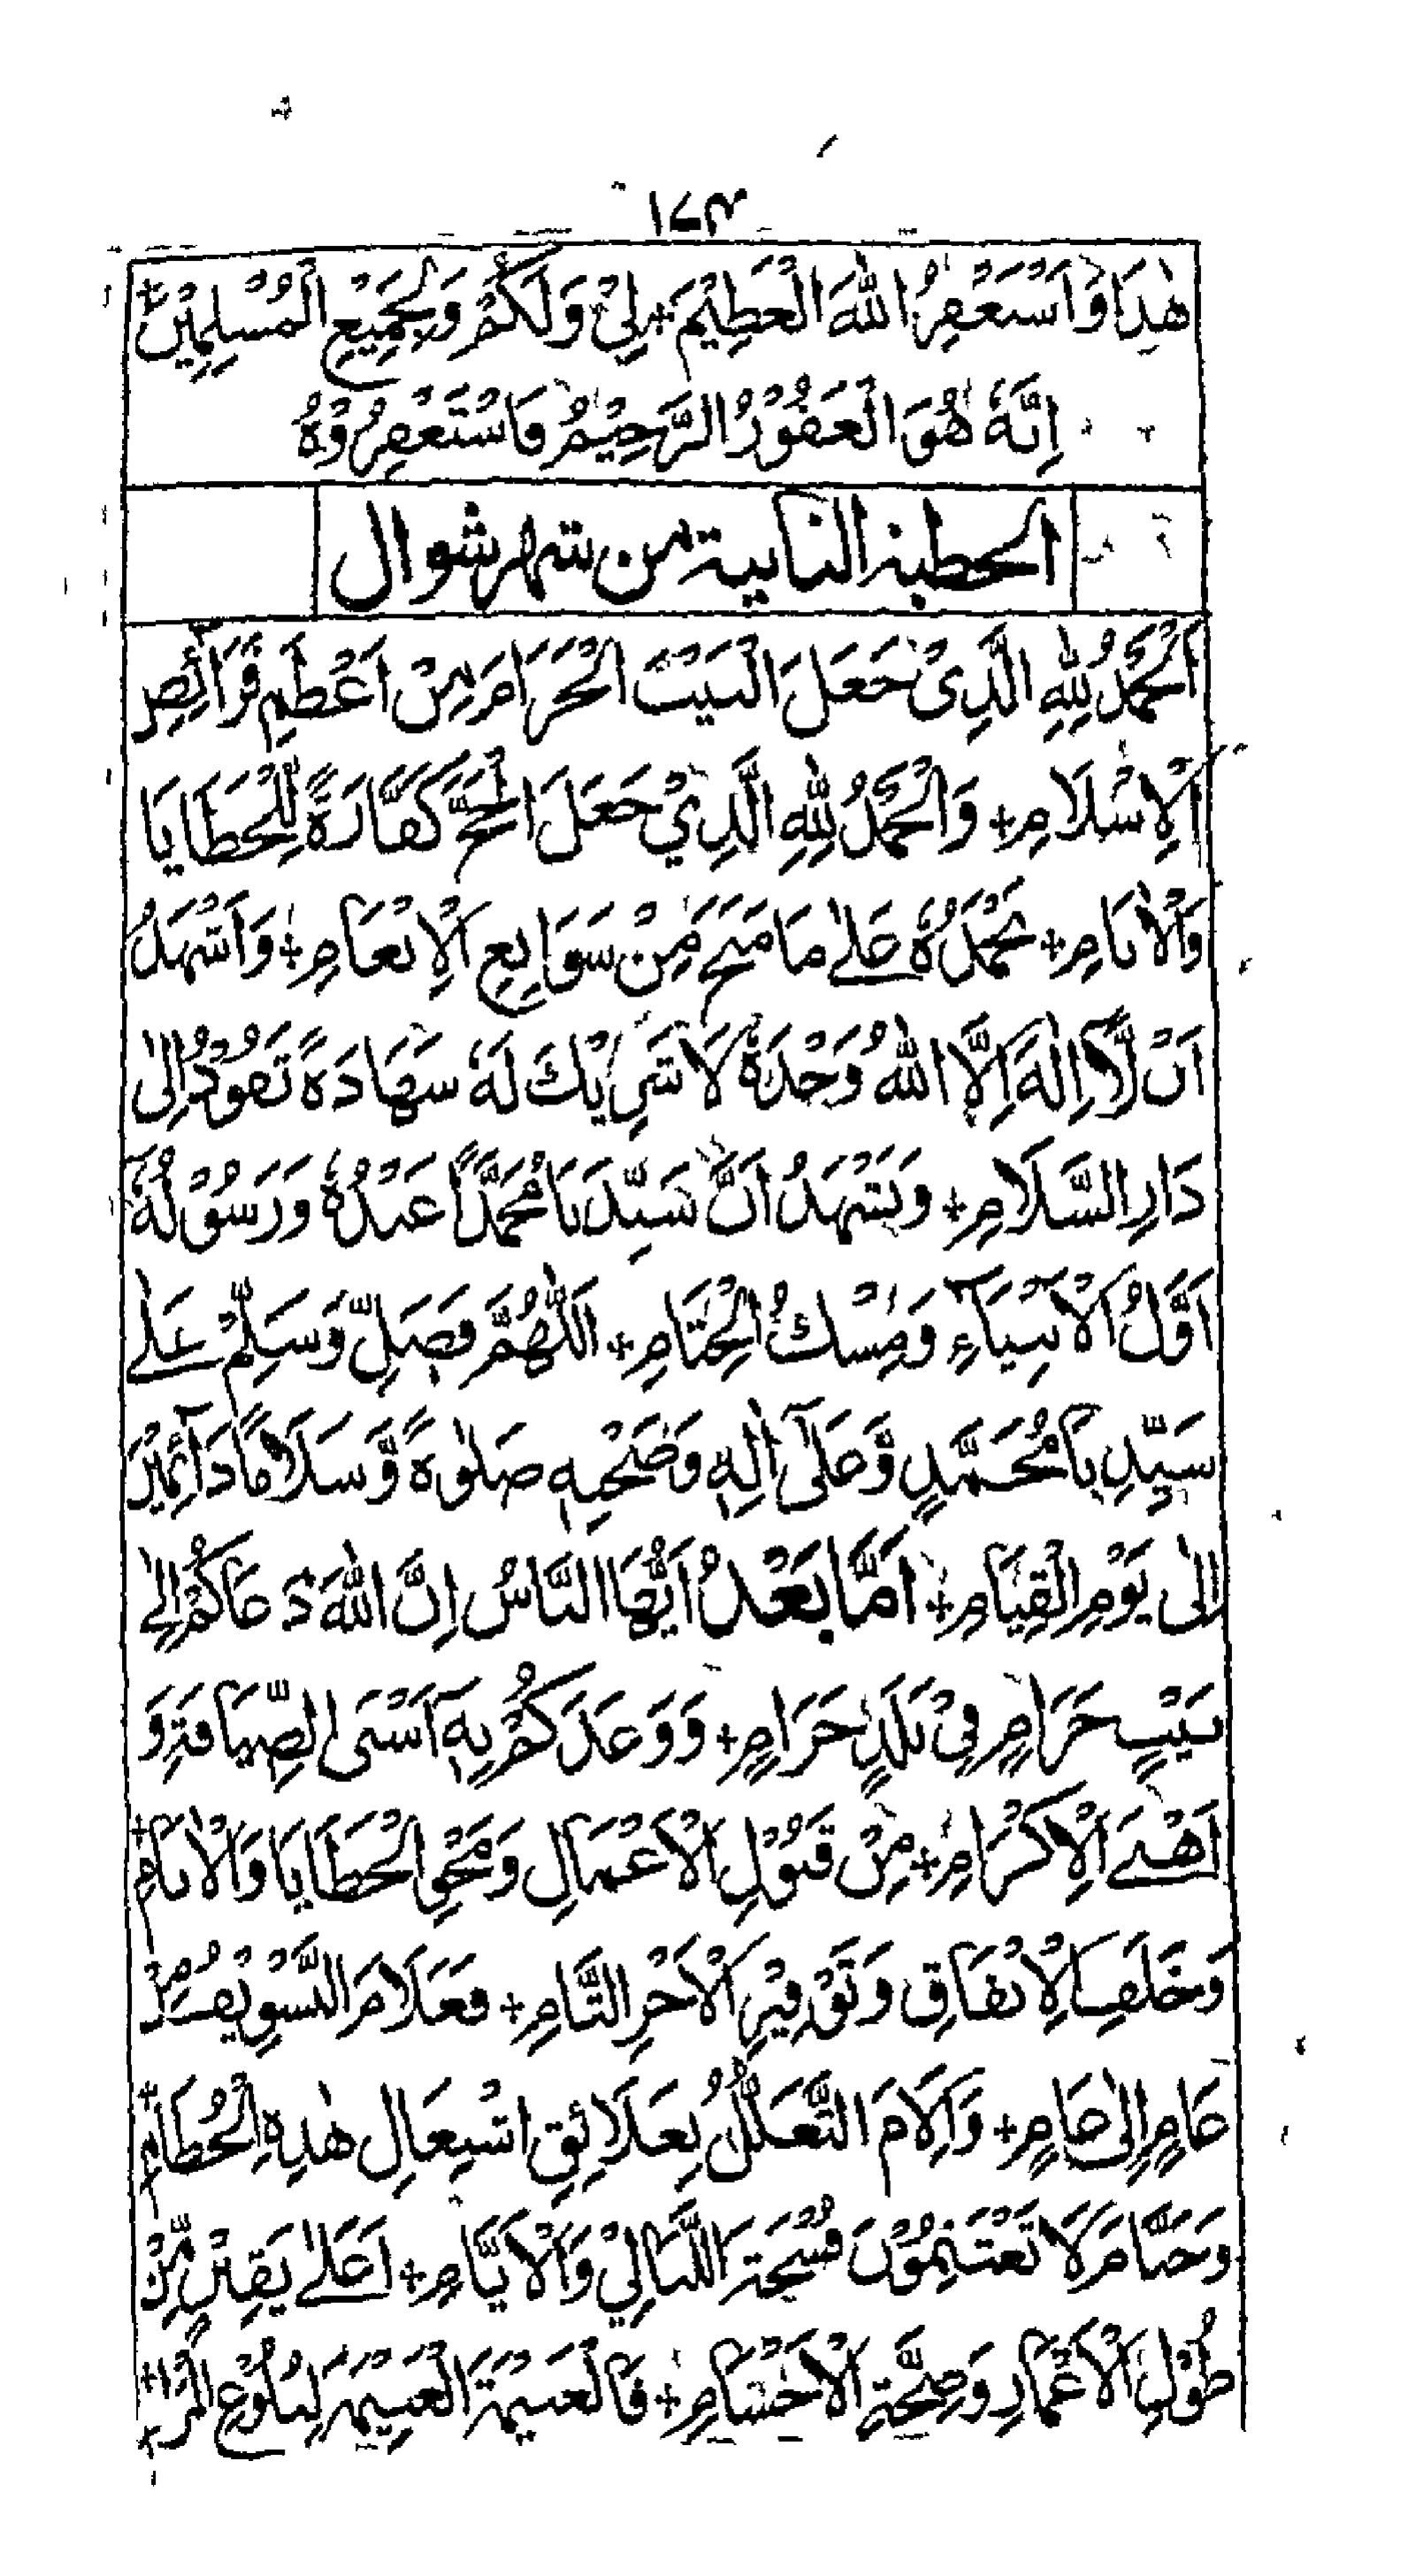 ١٧٣
هٰذَا وَاَسْتَغْفِرُ اللّٰهَ الْعَظِيْمَ + لِيْ وَلَكُمْ وَلِجَمِيْعِ الْمُسْلِمِيْنَ +
اِنَّهٗ هُوَ الْغَفُوْرُ الرَّحِيْمُ فَاسْتَغْفِرُوْهُ
الخطبة الثانية من شهر شوال
اَلْحَمْدُ لِلّٰهِ الَّذِىْ جَعَلَ الْبَيْتَ الْحَرَامَ مِنْ اَعْظَمِ فَرَائِضِ
الْاِسْلَامِ + وَالْحَمْدُ لِلّٰهِ الَّذِيْ جَعَلَ الْحَجَّ كَفَّارَةً لِّلْخَطَايَا
وَالْاٰثَامِ + نَحْمَدُهٗ عَلٰى مَا مَنَحَ مِنْ سَوَابِغِ الْاِنْعَامِ + وَاَشْهَدُ
اَنْ لَّا اِلٰهَ اِلَّا اللّٰهُ وَحْدَهٗ لَا شَرِيْكَ لَهٗ شَهَادَةً تَقُوْدُ اِلٰى
دَارِ السَّلَامِ + وَنَشْهَدُ اَنَّ سَيِّدَنَا مُحَمَّدًا عَبْدُهٗ وَرَسُوْلُهٗ
اَوَّلُ الْاَنْبِيَآءِ وَمِسْكُ الْخِتَامِ + اَللّٰهُمَّ فَصَلِّ وَسَلِّمْ عَلٰى
سَيِّدِنَا مُحَمَّدٍ وَّعَلٰٓى اٰلِهٖ وَصَحْبِهٖ صَلٰوةً وَّسَلَامًا دَآئِمَيْنِ
اِلٰى يَوْمِ الْقِيَامِ + اَمَّا بَعْدُ اَيُّهَا النَّاسُ اِنَّ اللّٰهَ دَعَاكُمْ اِلٰى
بَيْتٍ حَرَامٍ فِىْ بَلَدٍ حَرَامٍ + وَوَعَدَكُمْ بِهٖٓ اَسْنَى الضِّيَافَةِ وَ
اَهْنَے الْاِكْرَامِ + مِنْ قَبُوْلِ الْاَعْمَالِ وَمَحْىِ الْخَطَايَا وَالْاٰثَامِ +
وَخَلَفِ الْاِنْفَاقِ وَتَوْفِيْرِ الْاَجْرِ التَّامِ + فَعَلَامَ التَّسْوِيْفُ مِنْ
عَامٍ اِلٰى عَامٍ + وَاِلَامَ التَّعَلُّلُ بِعَلَائِقِ اشْتِغَالِ هٰذِهِ الْحُطَامِ +
وَحَتَّامَ لَا تَغْتَنِمُوْنَ فُسْحَةَ اللَّيَالِيْ وَالْاَيَّامِ + اَعَلٰى يَقِيْنٍ مِّنْ
طُوْلِ الْاَعْمَارِ وَصِحَّةِ الْاَجْسَامِ + فَالْغَنِيْمَةَ الْغَنِيْمَةَ لِبُلُوْغِ الْمَرَامِ +